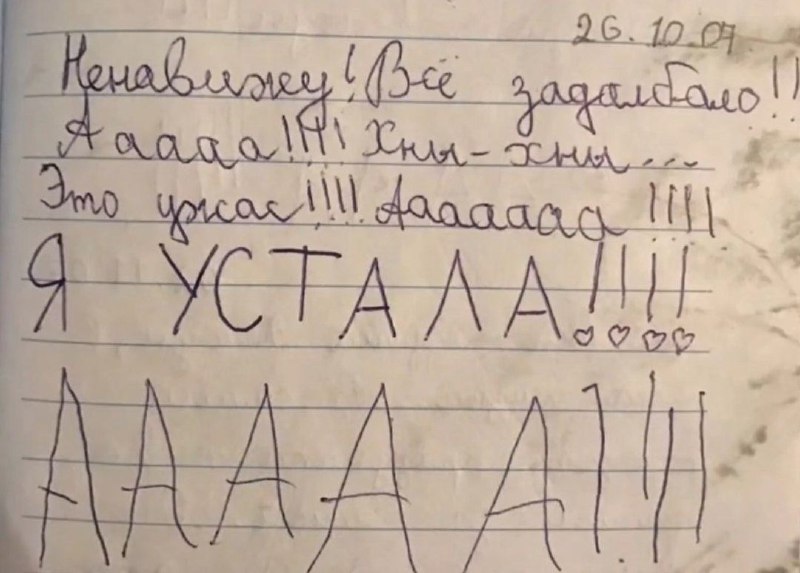 26.10.07
Ненавижу! Всё задалбало!!
Ааааа!!!! Хны-хны...
Это ужас!!!! Ааааааа !!!!
Я УСТАЛА!!!!
ААААА!!!!